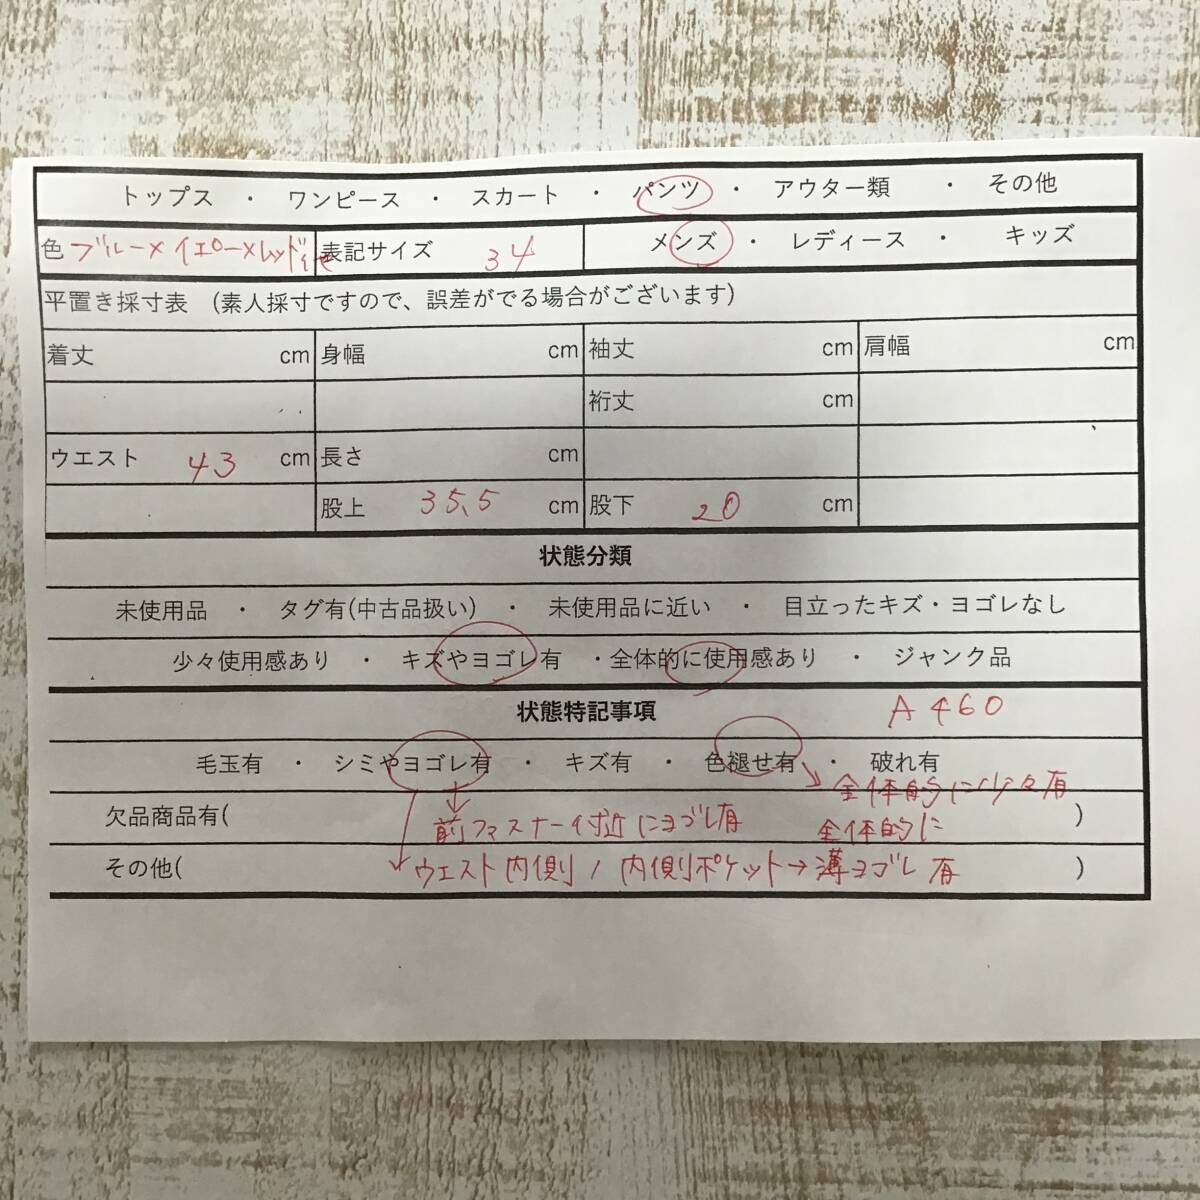 トップス ・ ワンピース ・ スカート ・ パンツ ・ アウター類 ・ その他
色 ブルー×イエロー×レッド 表記サイズ 34 メンズ ・ レディース ・ キッズ
平置き採寸表 (素人採寸ですので、誤差がでる場合がございます)
着丈 cm 身幅 cm 袖丈 cm 肩幅 cm
裄丈 cm
ウエスト 43 cm 長さ cm
股上 35.5 cm 股下 20 cm
状態分類
未使用品 ・ タグ有(中古品扱い) ・ 未使用品に近い ・ 目立ったキズ・ヨゴレなし
少々使用感あり ・ キズやヨゴレ有 ・全体的に使用感あり ・ ジャンク品
状態特記事項 A460
毛玉有 ・ シミやヨゴレ有 ・ キズ有 ・ 色褪せ有 ・ 破れ有
→ 全体的に少々有
欠品商品有( )
前ファスナー付近にヨゴレ有 全体的に
その他( ウエスト内側/内側ポケット→薄ヨゴレ有 )